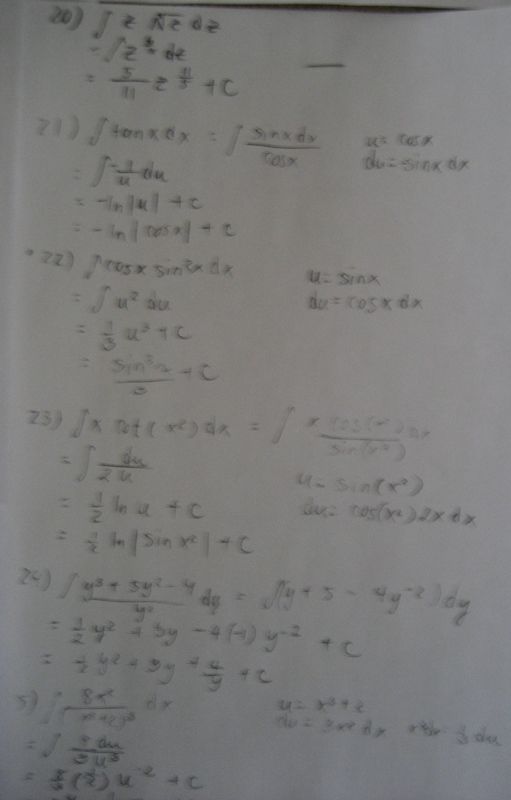 20) ∫ z ∛z dz
= ∫ z^ dz
= 5/11 z^(11/5) + C
21) ∫ tanx dx = ∫ sinx dx / cosx u = cosx
du = -sinx dx
= ∫ -1/u du
= -ln|u| + C
= -ln|cosx| + C
22) ∫ cosx sin²x dx u = sinx
= ∫ u² du du = cosx dx
= 1/3 u³ + C
= sin³x/3 + C
23) ∫ x cot(x²) dx = ∫ x cos(x²) dx / sin(x²)
= ∫ du/2u u = sin(x²)
= 1/2 ln u + C du = cos(x²) 2x dx
= 1/2 ln|sin x²| + C
24) ∫ y³ + 5y² - 4 / y² dy = ∫(y + 5 - 4y⁻²) dy
= 1/2 y² + 5y - 4(-1) y⁻² + C
= 1/2 y² + 5y + 4/y + C
5) ∫ 8x² / (x³+2)³ dx u = x³+2
du = 3x² dx x²dx = 1/3 du
= ∫ 8 du / 3u³
u⁻² + C